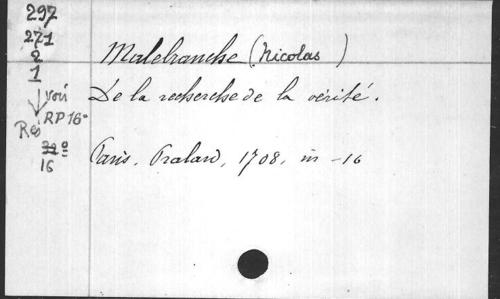 297
271
2
1
voir
RP 16°
Rés
16
Malebranche (Nicolas )
De la recherche de la vérité.
Paris, Pralard, 1708, in-16